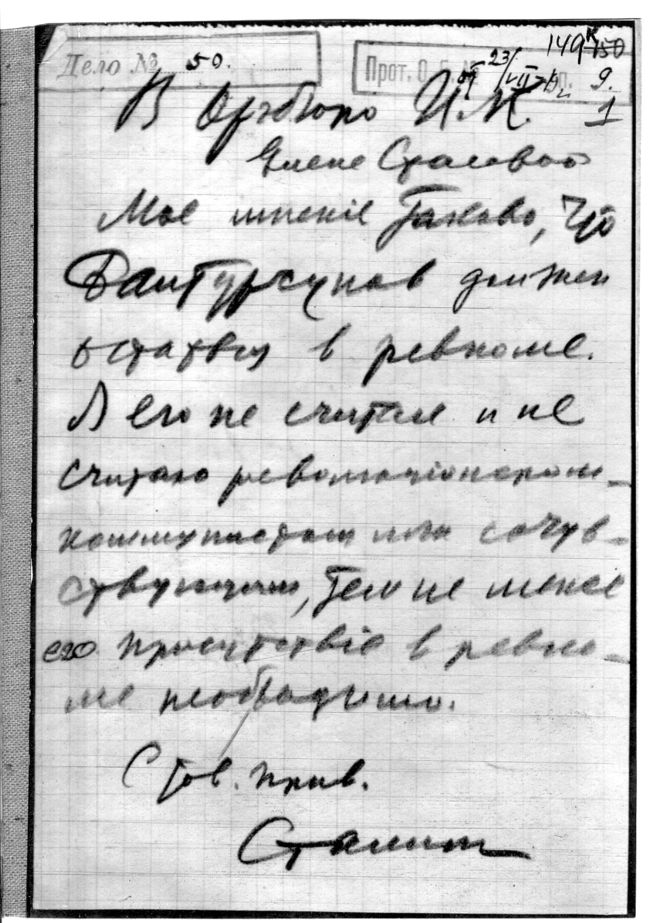 149 к 150
Дело № 50.
Прот. О. Б. № 9.
от 23/VII
В Оргбюро Ц.К. 1
Елене Стасовой
Мое мненiе таково, что
Байтурсунов должен
остаться в ревкоме.
Я его не считал и не
считаю революцiонером-
коммунистом или сочув-
ствующим, тем не менее
его присутствiе в ревко-
ме необходимо.
С тов. прив.
Сталин